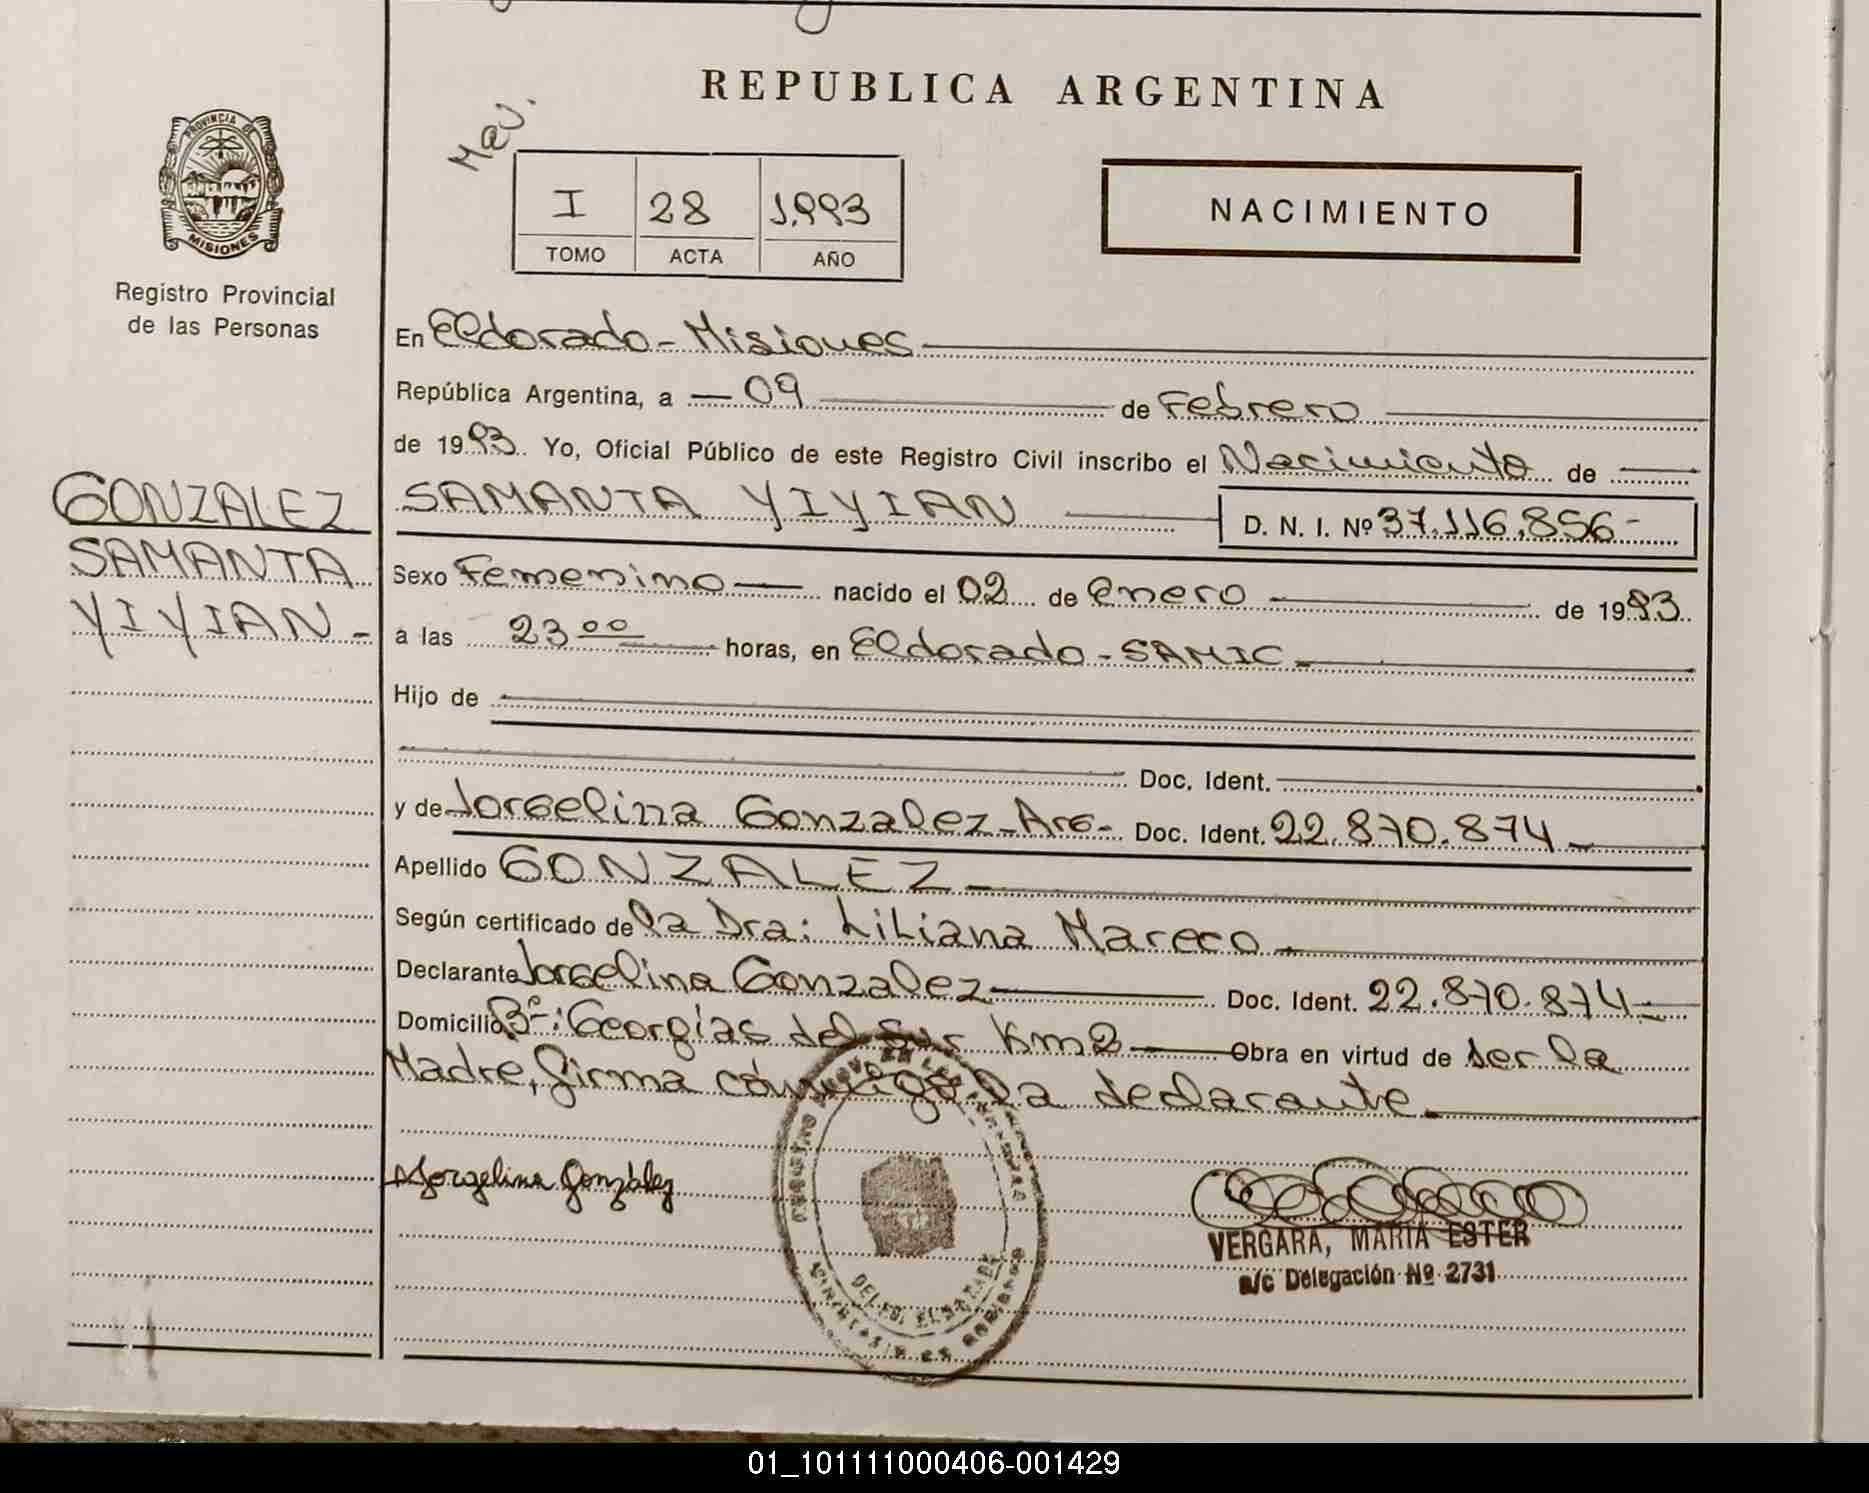 REPUBLICA ARGENTINA
PROVINCIA DE
MISIONES
Registro Provincial
de las Personas
I 28 1.993
TOMO ACTA AÑO
NACIMIENTO
En Eldorado - Misiones
República Argentina, a 09 de Febrero
de 1993. Yo, Oficial Público de este Registro Civil inscribo el Nacimiento de
GONZALEZ
SAMANTA
YIYIAN -
SAMANTA YIYIAN D. N. I. Nº 37.116.856-
Sexo Femenino nacido el 02 de Enero de 1993.
a las 23 00 horas, en Eldorado - SAMIC
Hijo de
Doc. Ident.
y de Jorgelina Gonzalez - Arg- Doc. Ident. 22.870.874
Apellido GONZALEZ
Según certificado de la Dra: Liliana Mareco
Declarante Jorgelina Gonzalez Doc. Ident. 22.870.874
Domicilio Bº: Georgias del Sur Km2 Obra en virtud de ser la
Madre, firma conmigo la declarante
Jorgelina González
VERGARA, MARIA ESTER
a/c Delegación Nº 2731
01_101111000406-001429